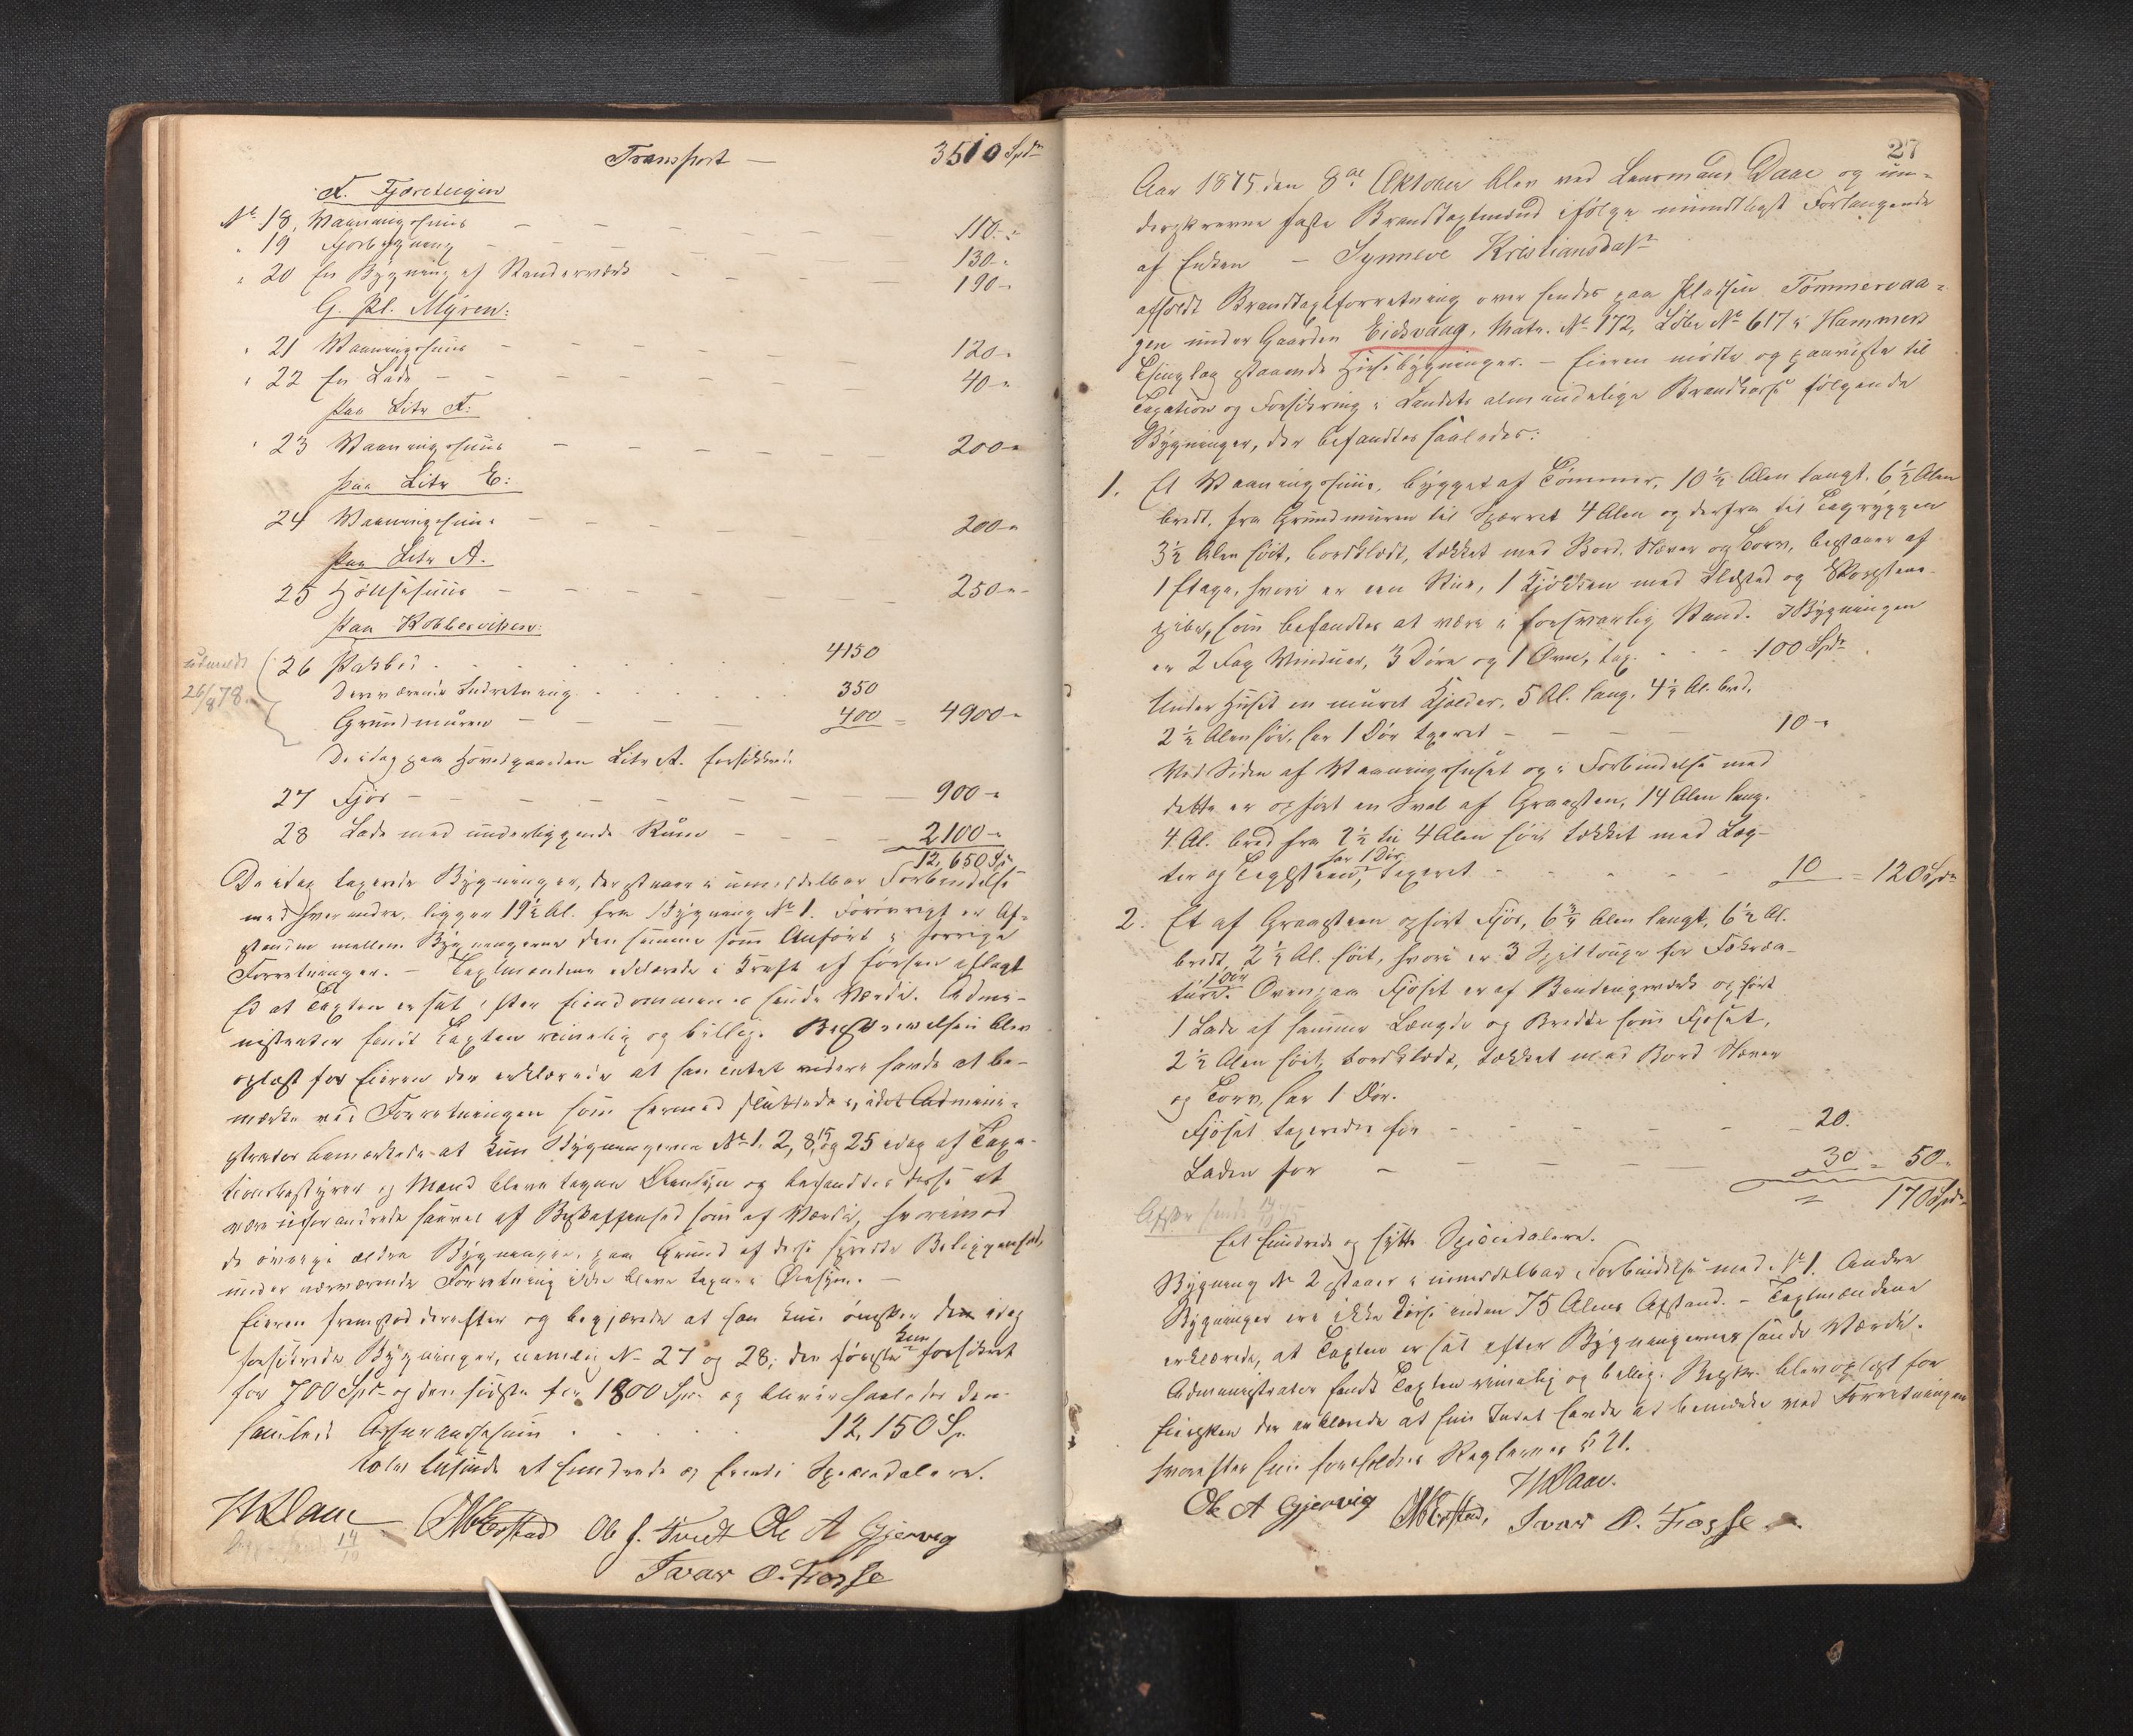 Transport — 3510 Spd
F. Fjæreteigen
No 18, Vaaningshuus — — — — — 110 "
" 19 Fjøsbygning — — — — — 130 "
" 20 En Bygning af Standerværk — — — — 190 "
G. Pl. Myren:
" 21 Vaaningshuus — — — — — 120 "
" 22 En Lade — — — — — 40 "
Paa Litr F:
" 23 Vaaningshuus — — — — — 200 "
Paa Litr E:
24 Vaaningshuus — — — — — 200 "
Paa Litr A.
25 Hønsehuus — — — — — 250 "
Paa Kobberviken:
26 Pakbod . . . . . 4150
Derværende Indretning . . . . . 350
Grundmuren — — — — 400 = 4900 "
26/8 78.
De idag paa Hovedgaarden Litr A. forsikkred:
27 Fjøs — — — — — 900 "
28 Lade med underliggende Rum — — — 2100 "
12,650 Sp
De idag taxerede Bygninger, der staaer i umiddelbar Forbindelse
med hverandre, ligger 19½ Al. fra Bygning No 1. Forøvrigt er Af-
standen mellem Bygningerne den samme som Anført i forrige
Forretninger. — Taxtmændene erklærede i Kraft af førhen aflagt
Ed at Taxten er sat efter Eiendommenes sande Værdi. Admi-
nistrator fandt Taxten rimelig og billig. Beskrivelsen blev
oplæst for Eieren der erklærede at han intet videre havde at be-
mærke ved Forretningen som hermed sluttedes, idet Admini-
strator bemærkede at kun Bygningerne No 1, 2, 8, 15 og 25 idag af Taxa-
tionsbestyrer og Mænd bleve tagne i Øiesyn og befandtes disse at
være uforandrede saavel af Beskaffenhed som af Værdi, hvorimod
de øvrige ældre Bygninger, paa Grund af deres spredte Beliggenhed,
under nærværende Forretning ikke bleve tagne i Øiesyn. —
Eieren fremstod derefter og begjærede at han kun ønsker den idag
forsikrede Bygninger, nemlig No 27 og 28, den første kun forsikret
for 700 Spd og den sidste for 1800 Spd og bliver saaledes den
samlede Assurancesum . . . . . 12,150 Sp
tolv tusinde et hundrede og femti Speciedalere.
HDaae OMErstad Ob J. Tvedt Ole A Gjervig
14/10
Ivar O. Fosse
27
Aar 1875 den 8de Oktober blev ved Lensmand Daae og un-
derskrevne faste Brandtaxtmænd ifølge mundtligt Forlangende
af Enken — Synneve Kristiansdatr
afholdt Brandtaxtforretning over hendes paa Pladsen Tømmervaa-
gen under Gaarden Eidsvaag, Matr. No 172, Løbe No 617 i Hammers
Thinglag staaende Huusebygninger. — Eieren mødte og paaviste til
Taxation og Forsikring i Landets almindelige Brandkasse følgende
Bygninger, der befandtes saaledes:
1. Et Vaaningshuus, bygget af Tømmer, 10½ Alen langt, 6½ Alen
bredt, fra Grundmuren til Sparret 4 Alen og derfra til Tagryggen
3½ Alen høit, bordklædt, tækket med Bord, Næver og Torv, bestaaer af
1 Etage, hvori er een Stue, 1 Kjøkken med Ildsted og Skorsteens-
pibe, som befandtes at være i forsvarlig Stand. I Bygningen
er 2 Fag Vinduer, 3 Døre og 1 Ovn, tax. — — 100 Spd
Under Huset en muret Kjelder, 5 Al. lang, 4½ Al. bred,
2½ Alen høi, har 1 Dør taxeret — — — — 10 "
Ved Siden af Vaaningshuset og i Forbindelse med
dette er opført en Sval af Graasten, 14 Alen lang,
4 Al. bred fra 2½ til 4 Alen høi tækket med Læg-
ter og Teglsteen, har 1 Dør, taxeret — — — — 10 = 120 Spd
2. Et af Graasteen opført Fjøs, 6¾ Alen langt, 6½ Al.
bredt, 2½ Al. høit, hvori er 3 Spiltouge for Fækrea-
ture. 1 Dør Ovenpaa Fjøset er af Bindingsværk opført
1 Lade af samme Længde og Bredde som Fjøset,
2½ Alen høit, bordklædt, tækket med Bord Næver
og Torv, har 1 Dør.
Fjøset taxeredes for — — — — — 20.
Laden for — — — — — 30 = 50 "
= 170 Spd
Et hundrede og sytti Speciedalere.
Bygning No 2 staaer i umiddelbar Forbindelse med No 1. Andre
Bygninger ere ikke disse inden 75 Alens Afstand. — Taxtmændene
erklærede, at Taxten er sat efter Bygningernes sande Værdi.
Administrator fandt Taxten rimelig og billig. Beskr. blev oplæst for
Eiersken der erklærede at hun Intet havde at bemærke ved Forretningen
hvorefter hun foreholdtes Reglernes § 21.
HDaae.
Ole A Gjervig OMErstad, Ivar O. Fosse